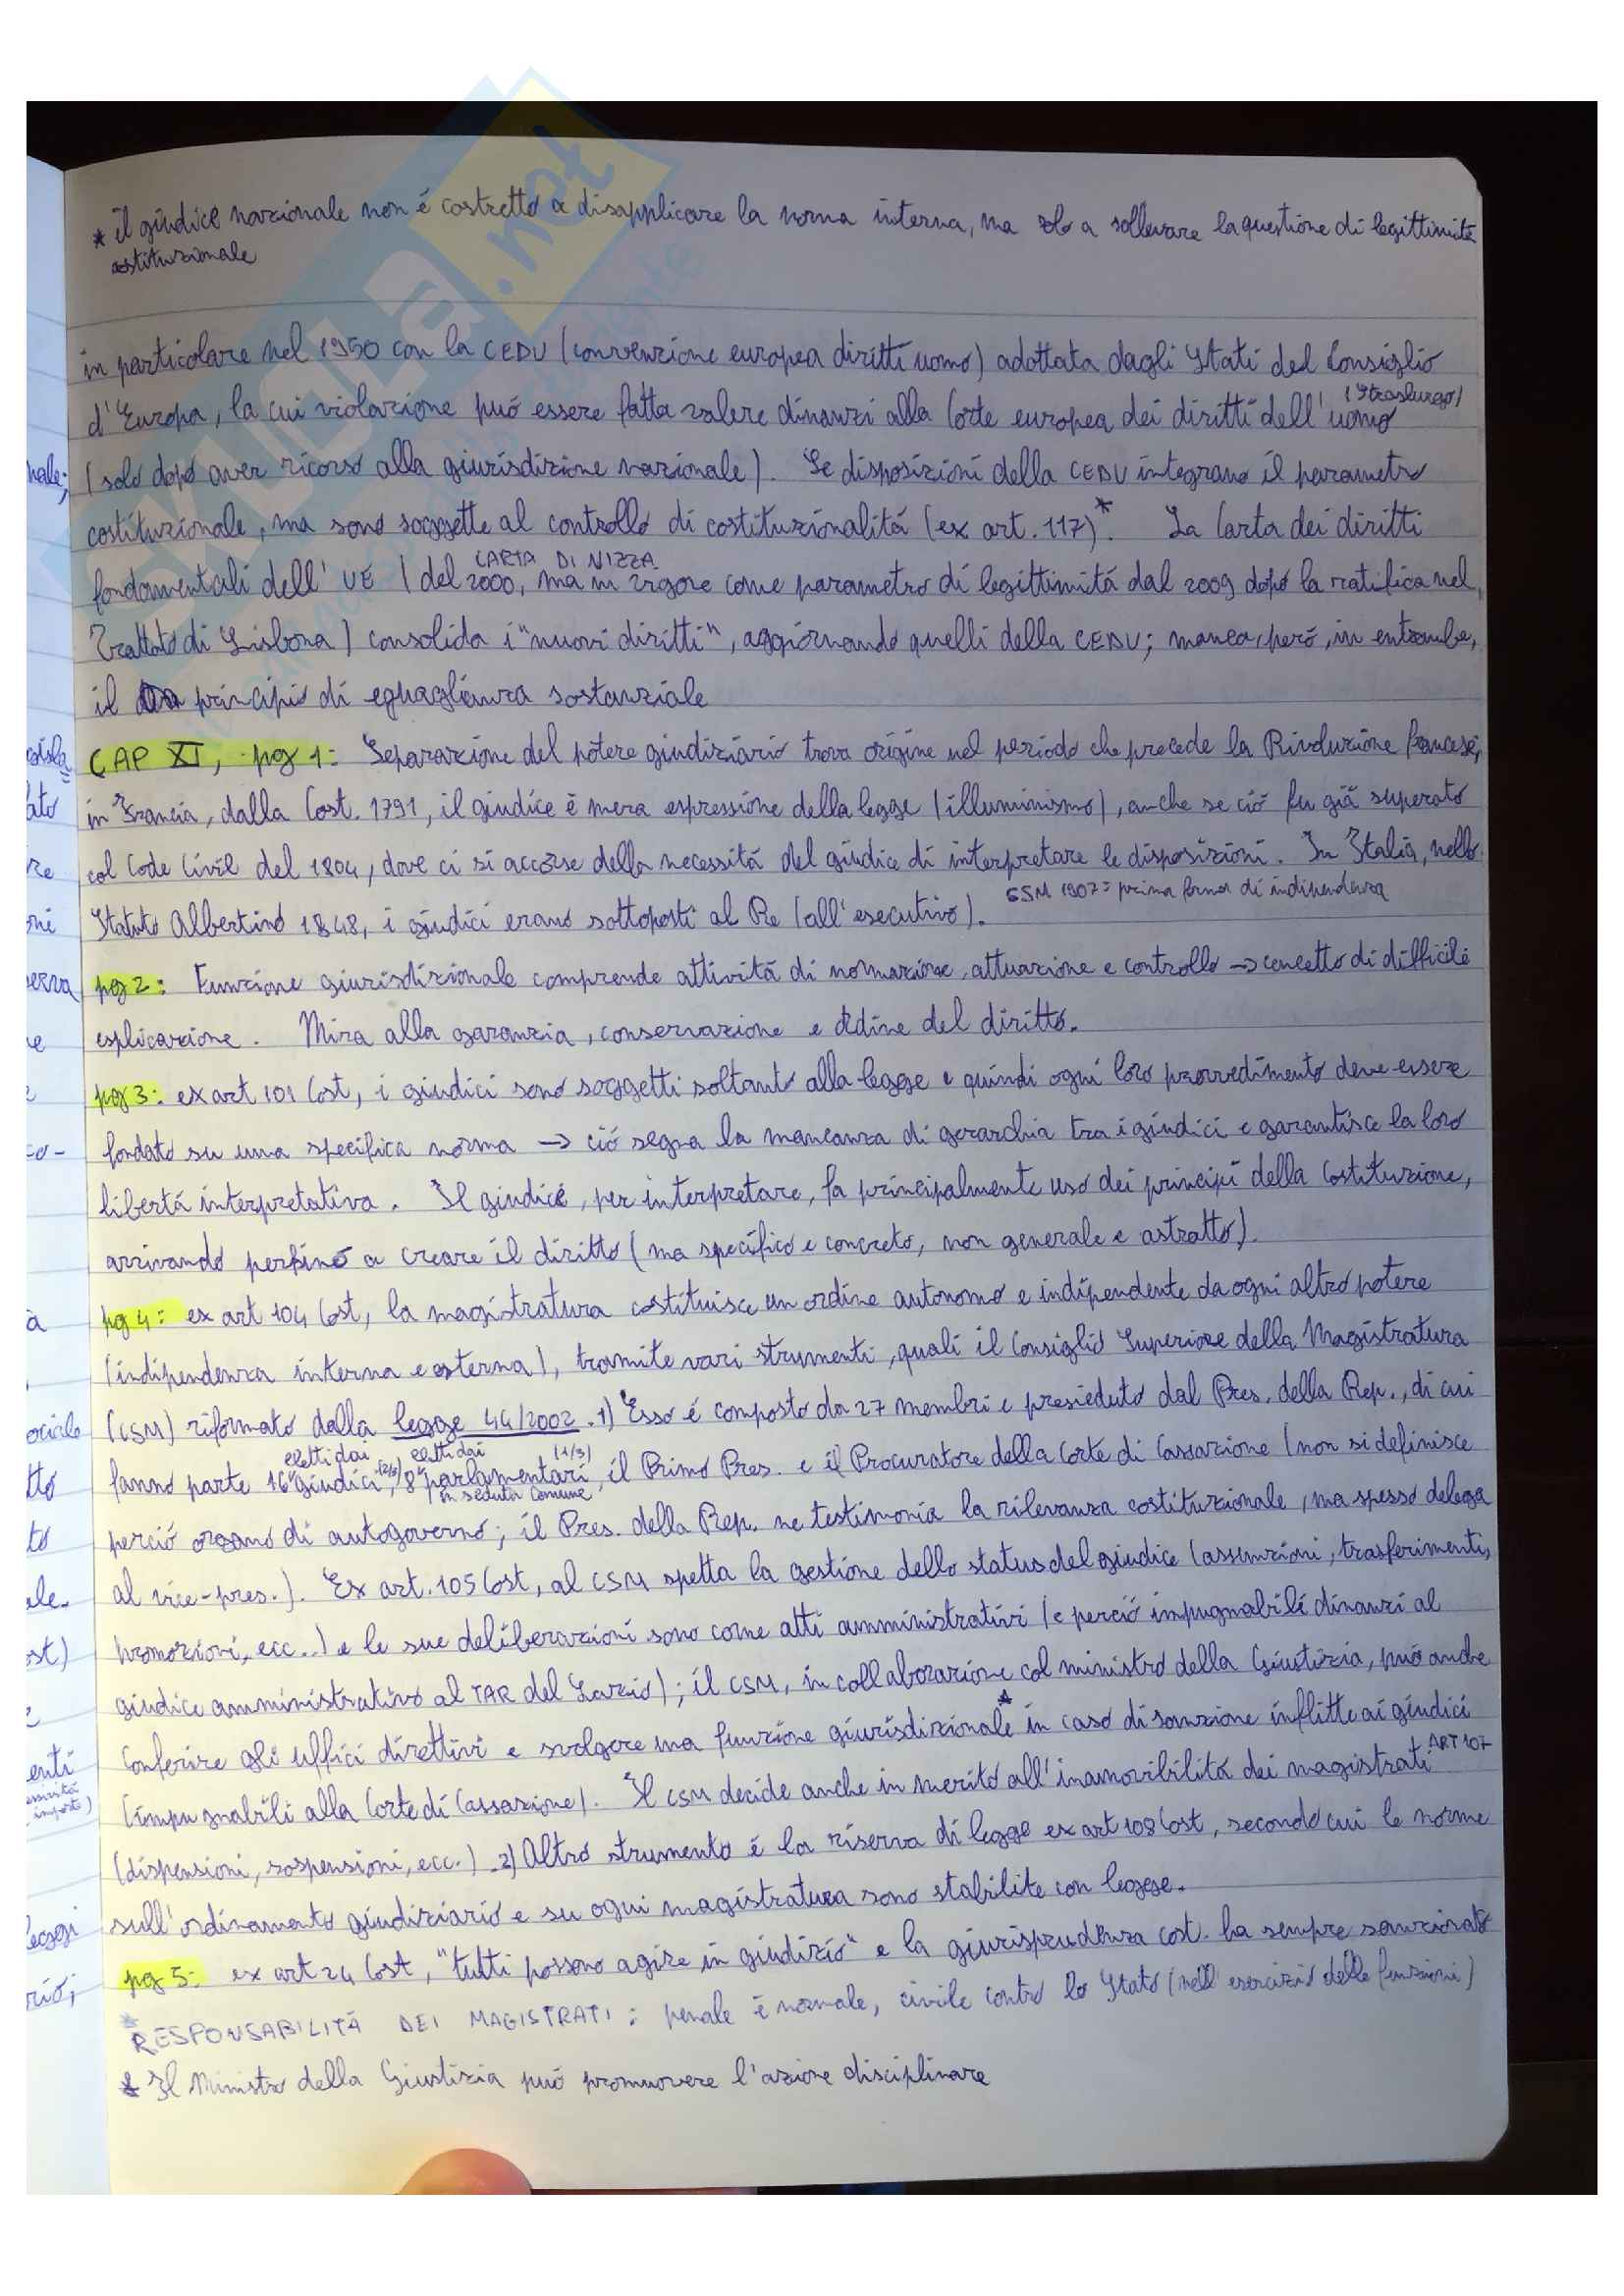 * il giudice nazionale non é costretto a disapplicare la norma interna, ma solo a sollevare la questione di legittimità
costituzionale
in particolare nel 1950 con la CEDU (convenzione europea diritti uomo) adottata dagli Stati del Consiglio
d'Europa, la cui violazione puó essere fatta valere dinanzi alla Corte europea dei diritti dell'uomo (Strasburgo)
(solo dopo aver ricorso alla giurisdizione nazionale). Le disposizioni della CEDU integrano il parametro
costituzionale, ma sono soggette al controllo di costituzionalitá (ex art. 117)*. La Carta dei diritti
CARTA DI NIZZA
fondamentali dell'UE (del 2000, ma in vigore come parametro di legittimitá dal 2009 dopo la ratifica nel
Trattato di Lisbona) consolida i "nuovi diritti", aggiornando quelli della CEDU; manca, peró, in entrambe,
il principio di eguaglianza sostanziale
CAP XI, pg 1: Separazione del potere giudiziario trova origine nel periodo che precede la Rivoluzione francese;
in Francia, dalla Cost. 1791, il giudice é mera espressione della legge (illuminismo), anche se ció fu giá superato
col Code Civil del 1804, dove ci si accorse della necessitá del giudice di interpretare le disposizioni. In Italia, nello
CSM 1907: prima forma di indipendenza
Statuto Albertino 1848, i giudici erano sottoposti al Re (all'esecutivo).
pg 2: Funzione giurisdizionale comprende attivitá di normazione, attuazione e controllo → concetto di difficile
esplicazione. Mira alla garanzia, conservazione e ordine del diritto.
pg 3: ex art 101 Cost, i giudici sono soggetti soltanto alla legge e quindi ogni loro provvedimento deve essere
fondato su una specifica norma → ció segna la mancanza di gerarchia tra i giudici e garantisce la loro
libertá interpretativa. Il giudice, per interpretare, fa principalmente uso dei principi della Costituzione,
arrivando perfino a creare il diritto (ma specifico e concreto, non generale e astratto).
pg 4: ex art 104 Cost, la magistratura costituisce un ordine autonomo e indipendente da ogni altro potere
(indipendenza interna e esterna), tramite vari strumenti, quali il Consiglio Superiore della Magistratura
(CSM) riformato dalla legge 44/2002. 1) Esso é composto da 27 membri e presieduto dal Pres. della Rep., di cui
eletti dai (2/3) eletti dai (1/3)
fanno parte 16 giudici, 8 parlamentari, il Primo Pres. e il Procuratore della Corte di Cassazione (non si definisce
in seduta comune
perció organo di autogoverno; il Pres. della Rep. ne testimonia la rilevanza costituzionale, ma spesso delega
al vice-pres.). Ex art. 105 Cost, al CSM spetta la gestione dello status del giudice (assunzioni, trasferimenti,
promozioni, ecc..) e le sue deliberazioni sono come atti amministrativi (e perció impugnabili dinanzi al
giudice amministrativo al TAR del Lazio); il CSM, in collaborazione col ministro della Giustizia, puó anche
conferire gli uffici direttivi e svolgere una funzione giurisdizionale* in caso di sanzione inflitte ai giudici
(impugnabili alla Corte di Cassazione). Il CSM decide anche in merito all'inamovibilitá dei magistrati ART 107
(dispensioni, sospensioni, ecc.). 2) Altro strumento é la riserva di legge ex art 108 Cost, secondo cui le norme
sull'ordinamento giudiziario e su ogni magistratura sono stabilite con legge.
pg 5: ex art 24 Cost, "tutti possono agire in giudizio" e la giurisprudenza cost. ha sempre sanzionato
* RESPONSABILITÁ DEI MAGISTRATI: penale é normale, civile contro lo Stato (nell'esercizio delle funzioni)
* Il Ministro della Giustizia puó promuovere l'azione disciplinare